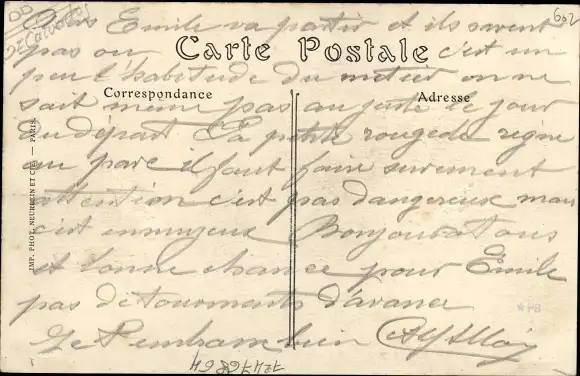 602
Emile va partir et ils savent
pas ou c'est un
Carte Postale
peu l'habitude du metier on ne
Correspondance
Adresse
sait meme pas au juste le jour
du départ La petite rougeole règne
au parc il faut faire surement
attention c'est pas dangereux mais
c'est ennuyeux Bonjour a tous
et bonne chance pour Emile
pas de tourments d'avance
Je t'embrasse bien
IMP. PHOT. NEURDEIN ET CIE. — PARIS
*PB